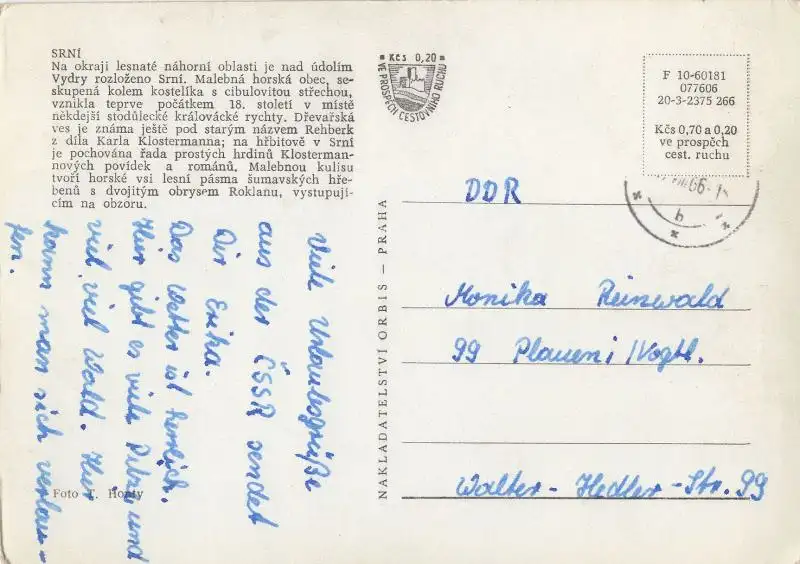 SRNÍ
Na okraji lesnaté náhorní oblasti je nad údolím
Vydry rozloženo Srní. Malebná horská obec, se-
skupená kolem kostelíka s cibulovitou střechou,
vznikla teprve počátkem 18. století v místě
někdejší stodůlecké královácké rychty. Dřevařská
ves je známa ještě pod starým názvem Rehberk
z díla Karla Klostermanna; na hřbitově v Srní
je pochována řada prostých hrdinů Klosterman-
nových povídek a románů. Malebnou kulisu
tvoří horské vsi lesní pásma šumavských hře-
benů s dvojitým obrysem Roklanu, vystupují-
cím na obzoru.
Kčs 0,20
VE PROSPĚCH CESTOVNÍHO RUCHU
F 10-60181
077606
20-3-2375 266
Kčs 0,70 a 0,20
ve prospěch
cest. ruchu
66
b
Viele Urlaubsgrüße
aus der ČSSR sendet
Dir Erika.
Das Wetter ist herrlich.
Hier gibt es viele Pilze und
viel, viel Wald. Hier
kann man sich verlau-
fen.
Foto T. Honty
NAKLADATELSTVÍ ORBIS — PRAHA
DDR
Monika Reinwald
99 Plauen i/Vogtl.
Walter-Hedler-Str. 99